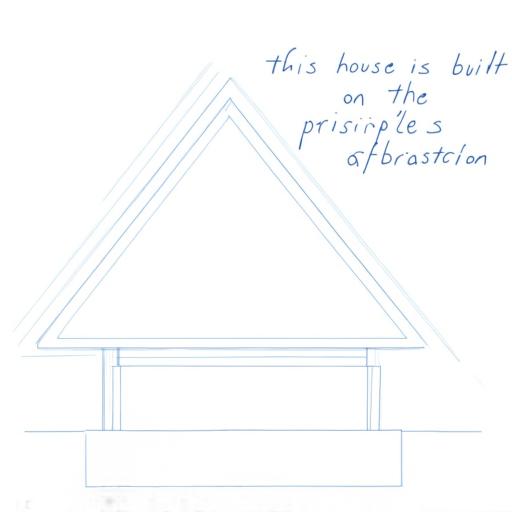 this house is built
on the
prisirp'le s
afbrastcion